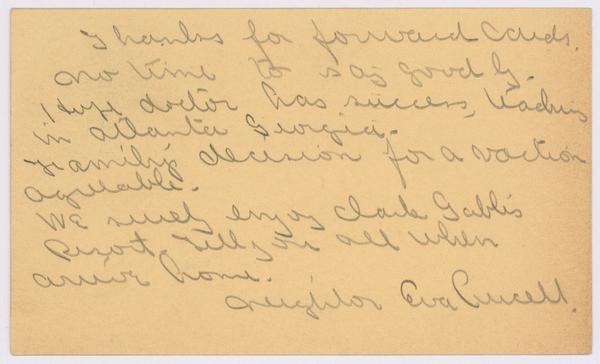 Thanks for forward cards.
no time to say good by.
I hope doctor has success, teaching
in Atlanta Georgia.
Family decision for a vaction
agreeable.
We surely enjoy Clark Gable's
Resort. Tell you all when
arrive home.
neighbor Eva Purcell.